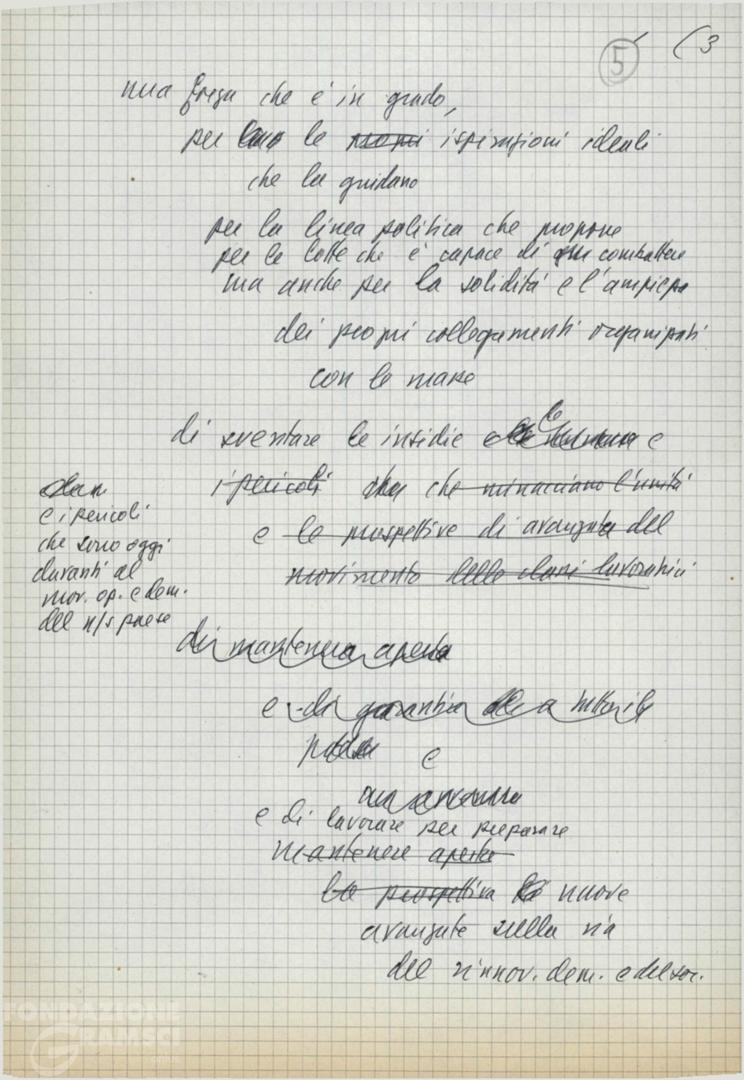 5 (3
una forza che è in grado,
per le ~~propri~~ ispirazioni ideali
che la guidano
per la linea politica che propone
per le lotte che è capace di combattere
ma anche per la solidità e l'ampiezza
dei propri collegamenti organizzati
con le masse
di sventare le insidie e
~~i pericoli~~ che ~~minacciano l'unità~~
e ~~le prospettive di avanzata del~~
~~movimento delle classi lavoratrici~~
e i pericoli
che sono oggi
davanti al
mov. op. e dem.
del n/s paese
~~di mantenere aperta~~
~~e di garantire a tutto il~~
e
e di lavorare per preparare
~~mantenere aperta~~
~~la prospettiva~~ nuove
avanzate sulla via
del rinnov. dem. e del soc.
FONDAZIONE
GRAMSCI